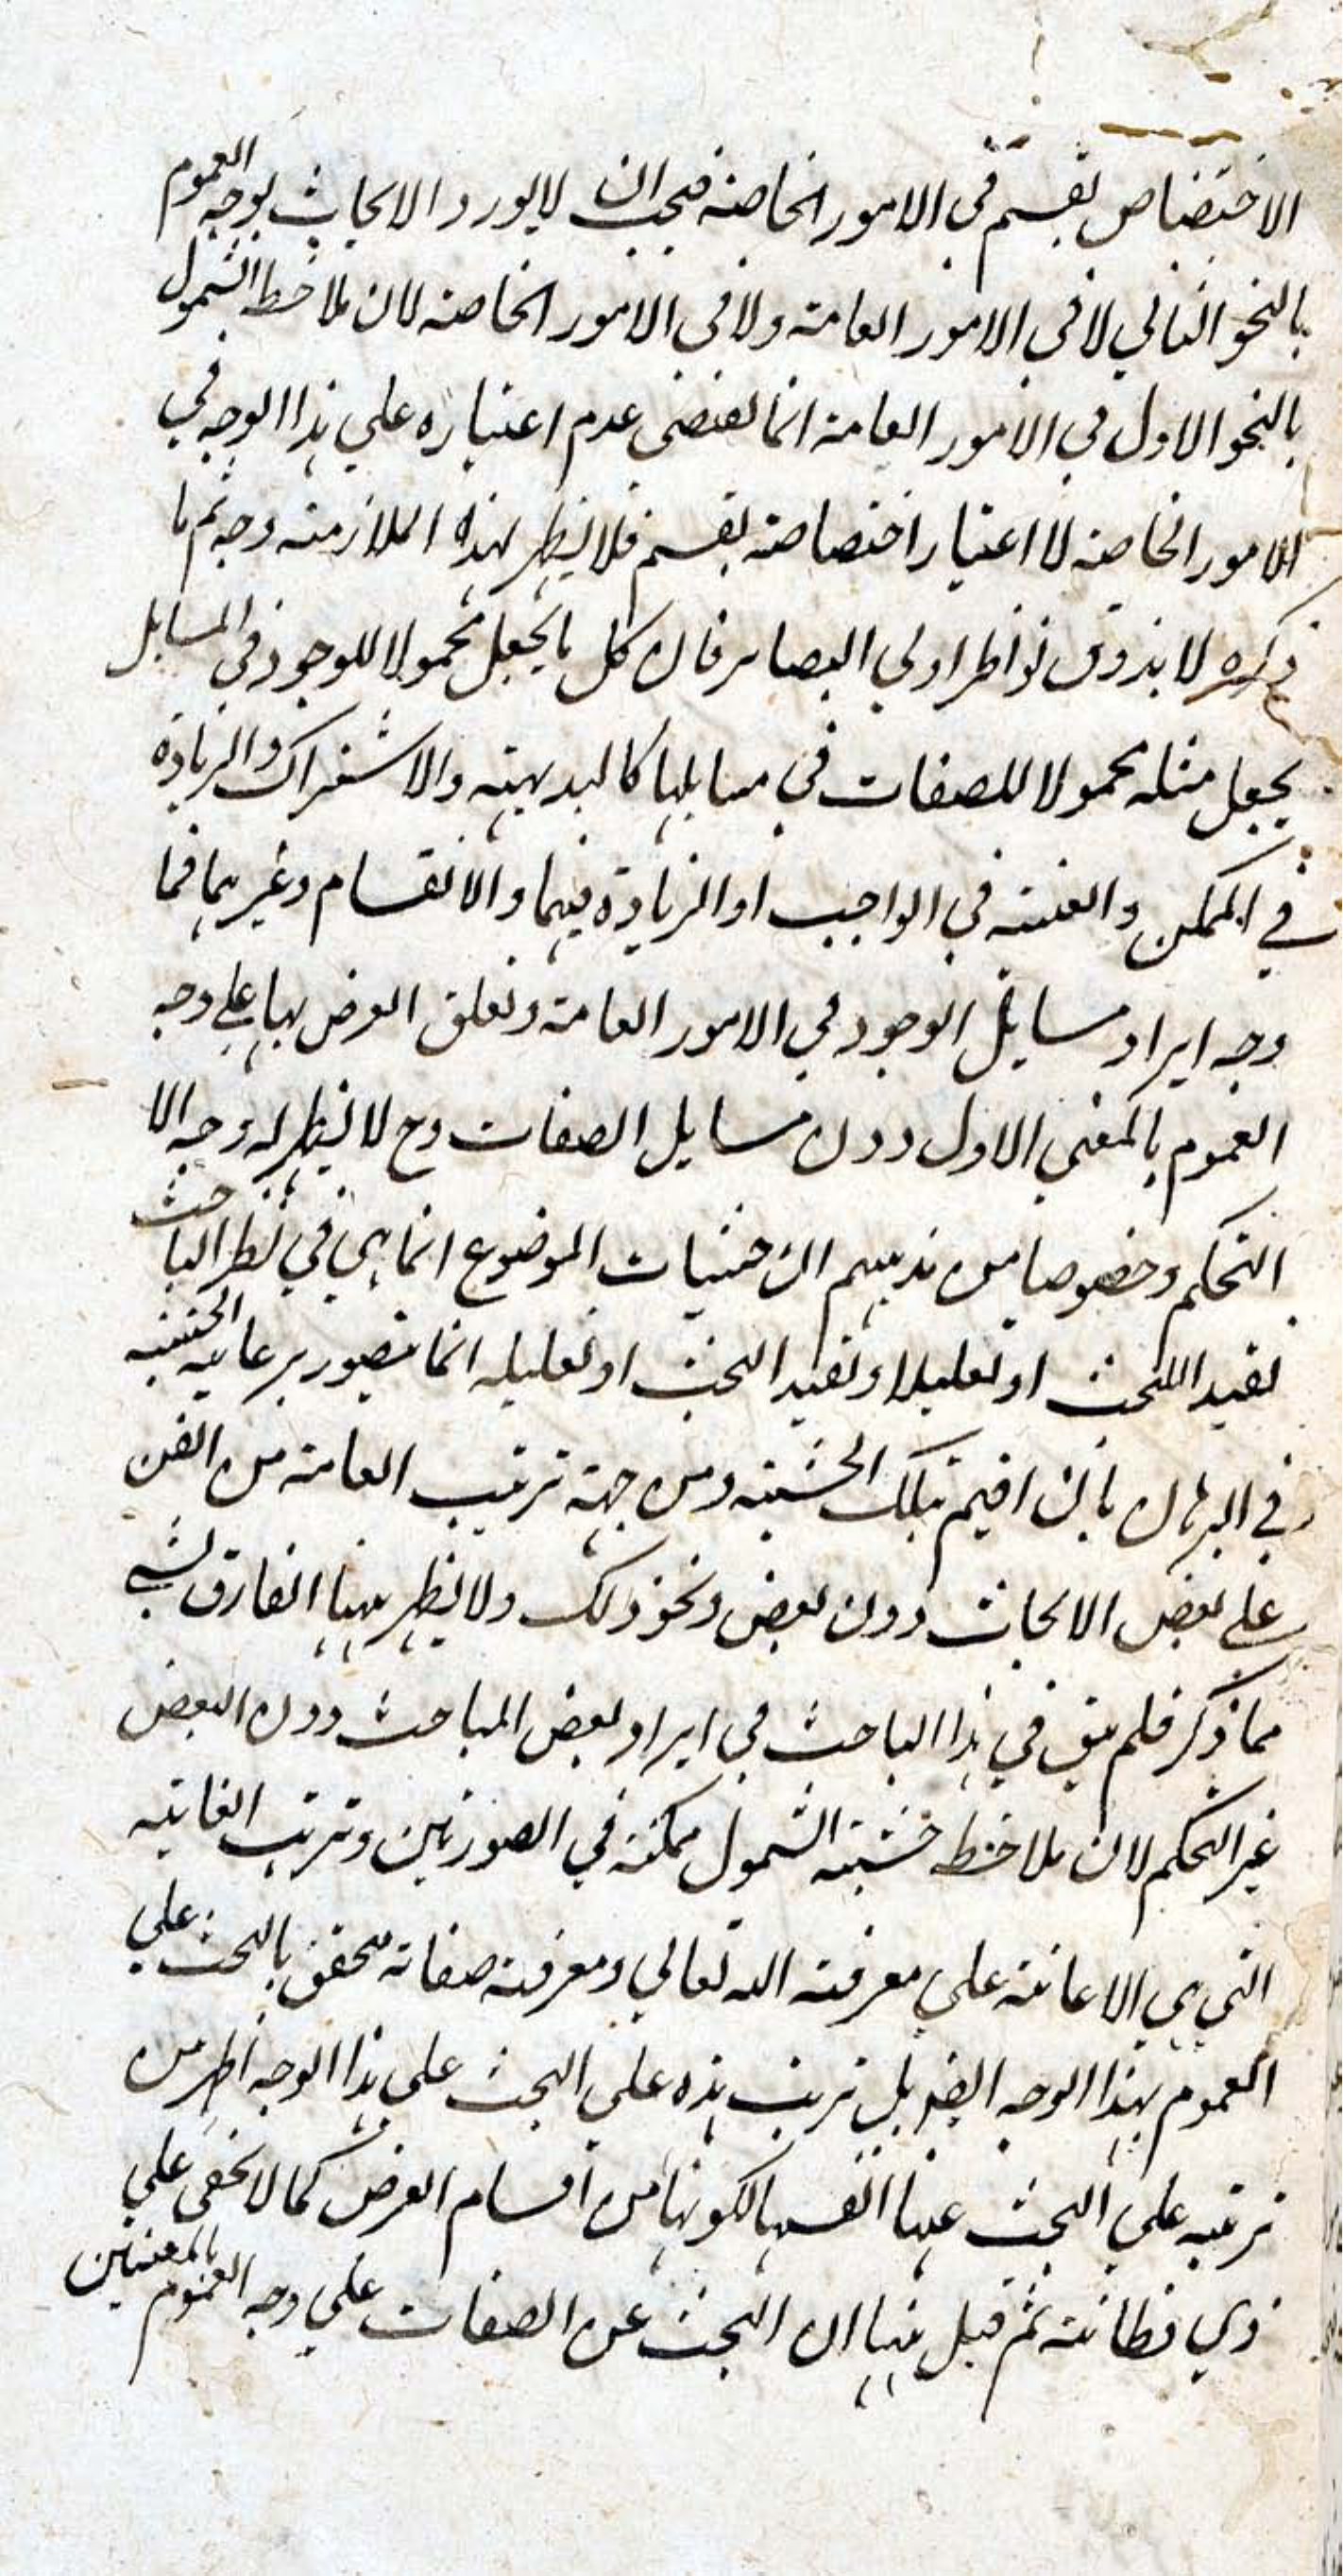 الاختصاص بقسم في الامور الخاصة فيجب ان لا يورد الابحاث بوجه العموم
بالنحو الثاني لا في الامور العامة ولا في الامور الخاصة لان ملاحظ الشمول
بالنحو الاول في الامور العامة انما يقتضى عدم اعتباره علي هذا الوجه في
الامور الخاصة لا اعتبار اختصاصة بقسم فلا يظهر لهذه الملازمة وجه ثم ما
ذكره لا يذوق نواظر اولي البصاير فان كل ما يجعل محمولا للوجود في المسايل
يجعل مثله محمولا للصفات في مسايلها كالبديهية والاشتراك والزيادة
في الممكن والعينية في الواجب او الزيادة فيهما والانقسام وغيرهما فما
وجه ايراد مسايل الوجود في الامور العامة وتعلق الغرض بها علي وجه
العموم بالمعني الاول دون مسايل الصفات وح لا يظهر له وجه الا
التحكم وخصوصا من مذهبهم ان حيثيات الموضوع انما هي في نظر الباحث
تقييد اللبحث او تعليلا وتقييد البحث او تعليله انما يتصور برعاية الحيثية
في البرهان بان اقيم بتلك الحيثية ومن جهة ترتيب العامة من الفن
علي بعض الابحاث دون بعض ونحو ذلك ولا يظهر ههنا الفارق بشي
مما ذكر فلم يبق في هذا الباحث في ايراد بعض المباحث دون البعض
غير التحكم لان ملاحظ حيثية الشمول ممكنة في الصورتين وترتب الغايته
التي هي الاعانة علي معرفة الله تعالي ومعرفة صفاته متحقق بالبحث علي
العموم بهذا الوجه ايضا بل ترتب هذه علي البحث علي هذا الوجه اظهر من
ترتبه علي البحث عنها انفسها لكونها من اقسام العرض كما لا يخفى علي
ذي فطانة ثم قيل ههنا ان البحث عن الصفات علي وجه العموم بالمعنيين